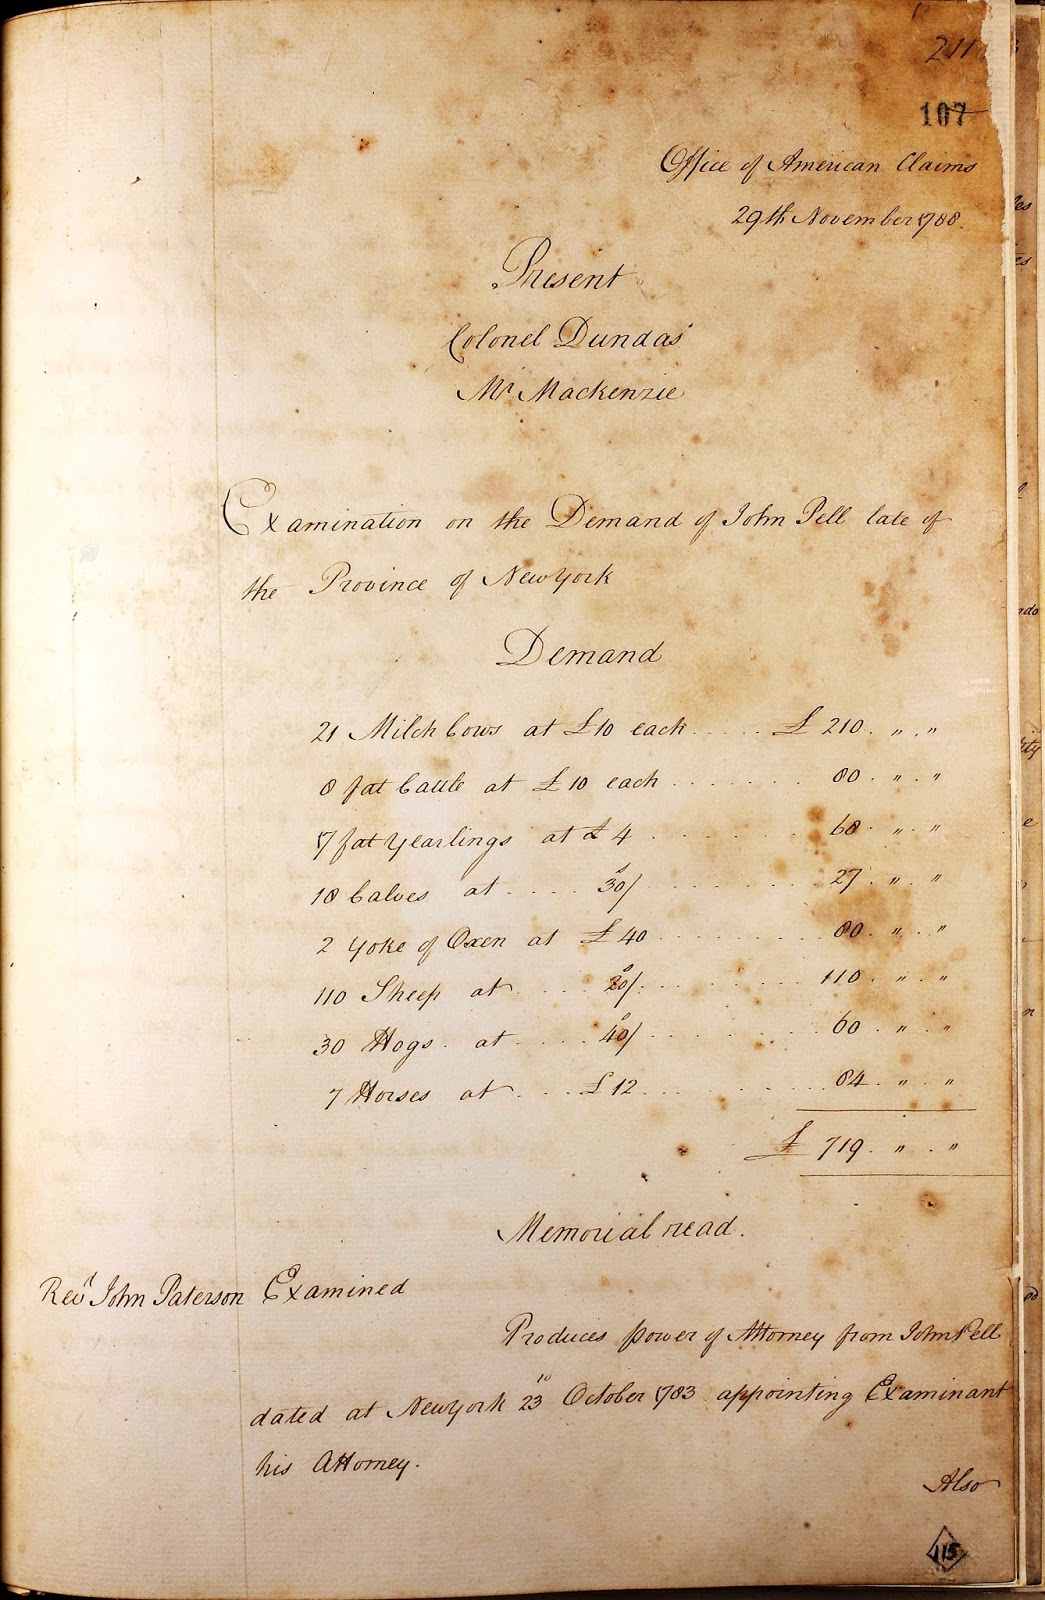 211
107
Office of American Claims
29th November 1788.
Present
Colonel Dundas
Mr Mackenzie
Examination on the Demand of John Pell late of
the Province of New York
Demand
21 Milch Cows at £10 each ..... £ 210 . " . "
8 fat Cattle at £10 each ....... 80 . " . "
17 fat Yearlings at £ 4 ....... 68 . " . "
18 Calves at .... 30s/ ....... 27 . " . "
2 Yoke of Oxen at £40 ....... 80 . " . "
110 Sheep at .... 20s/ ....... 110 . " . "
30 Hogs . at .... 40s/ ....... 60 . " . "
7 Horses at .... £12 ....... 84 . " . "
£ 719 . " . "
Memorial read.
Revd John Paterson Examined
Produces power of Attorney from John Pell
dated at New York 23 October 1783 appointing Examinant
his Attorney.
Also
115